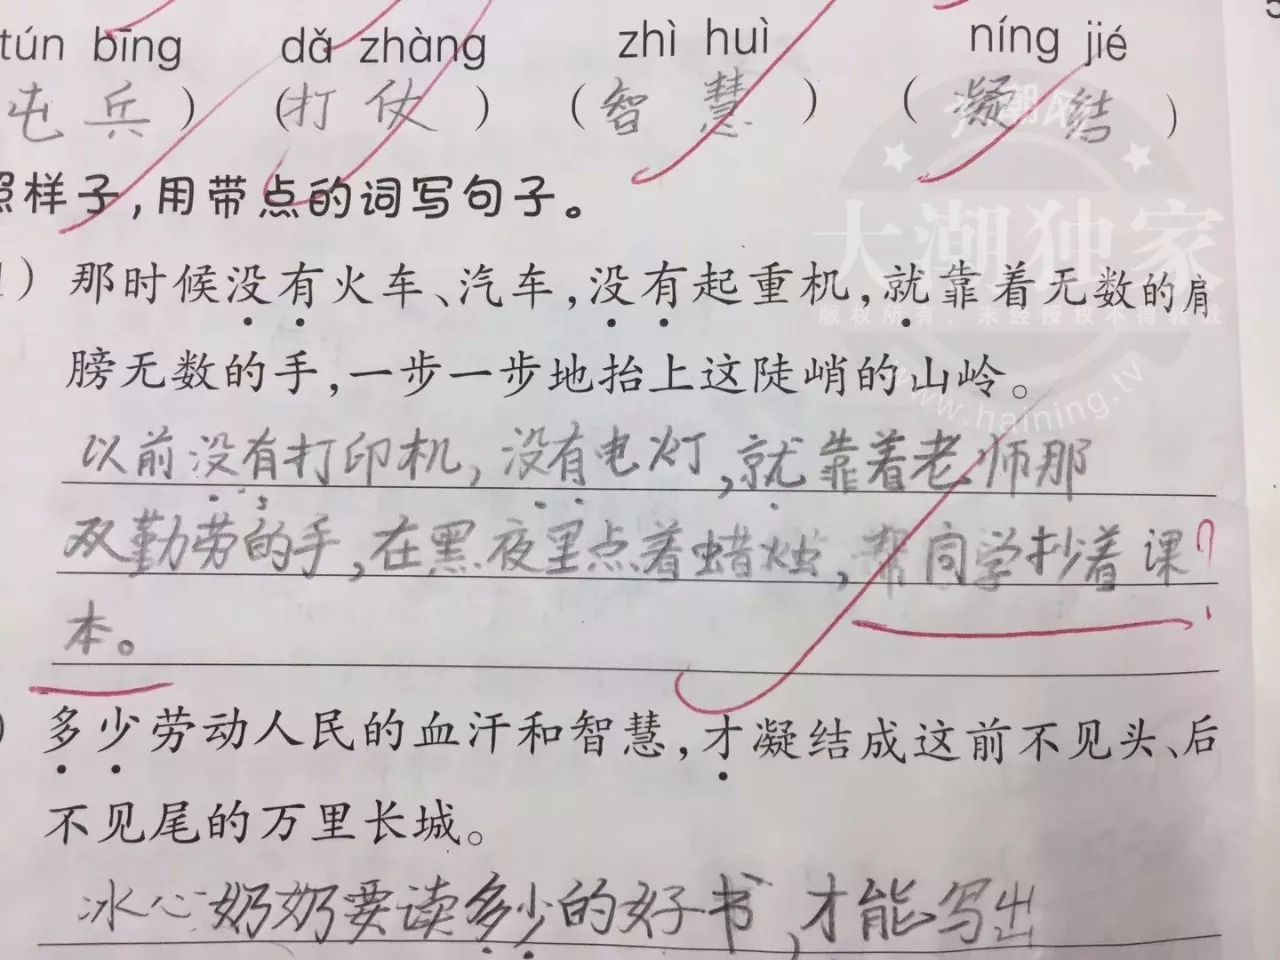 tún bīng dǎ zhàng zhì huì níng jié
屯兵） （打仗） （智慧） （凝结）
照样子，用带点的词写句子。
1）那时候没有火车、汽车，没有起重机，就靠着无数的肩
膀无数的手，一步一步地抬上这陡峭的山岭。
以前没有打印机，没有电灯，就靠着老师那
双勤劳的手，在黑夜里点着蜡烛，帮同学抄着课
本。
）多少劳动人民的血汗和智慧，才凝结成这前不见头、后
不见尾的万里长城。
冰心奶奶要读多少的好书，才能写出
大潮网
大潮独家
版权所有，未经授权不得转载
www.haining.tv